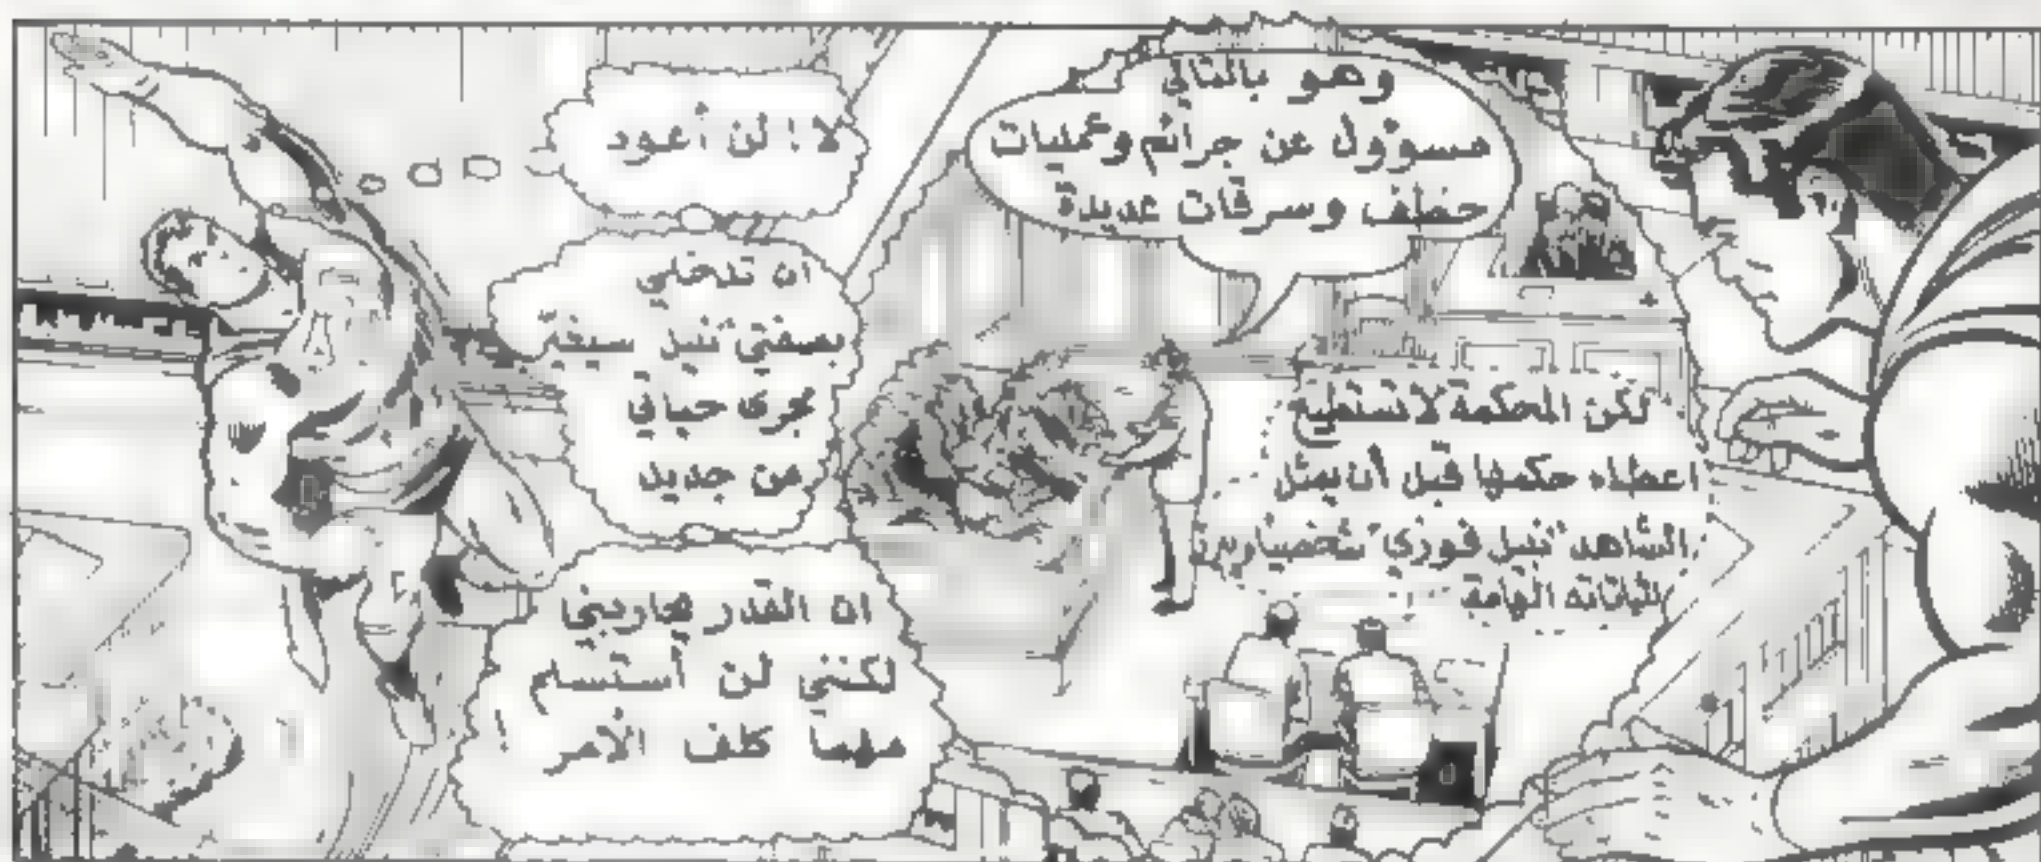 وهو بالتالي
مسؤول عن جرائم وعمليات
خطف وسرقات عديدة
لكن المحكمة لا تستطيع
اعطاء حكمها قبل أن يمثل
الشاهد "نبيل فوزي" شخصيا
الهامة
لا! لن أعود
ان تدخلي
بصفتي نبيل
مجرى حياتي
من جديد
ان القدر يحاربني
لكنني لن أستسلم
مهما كلف الأمر!